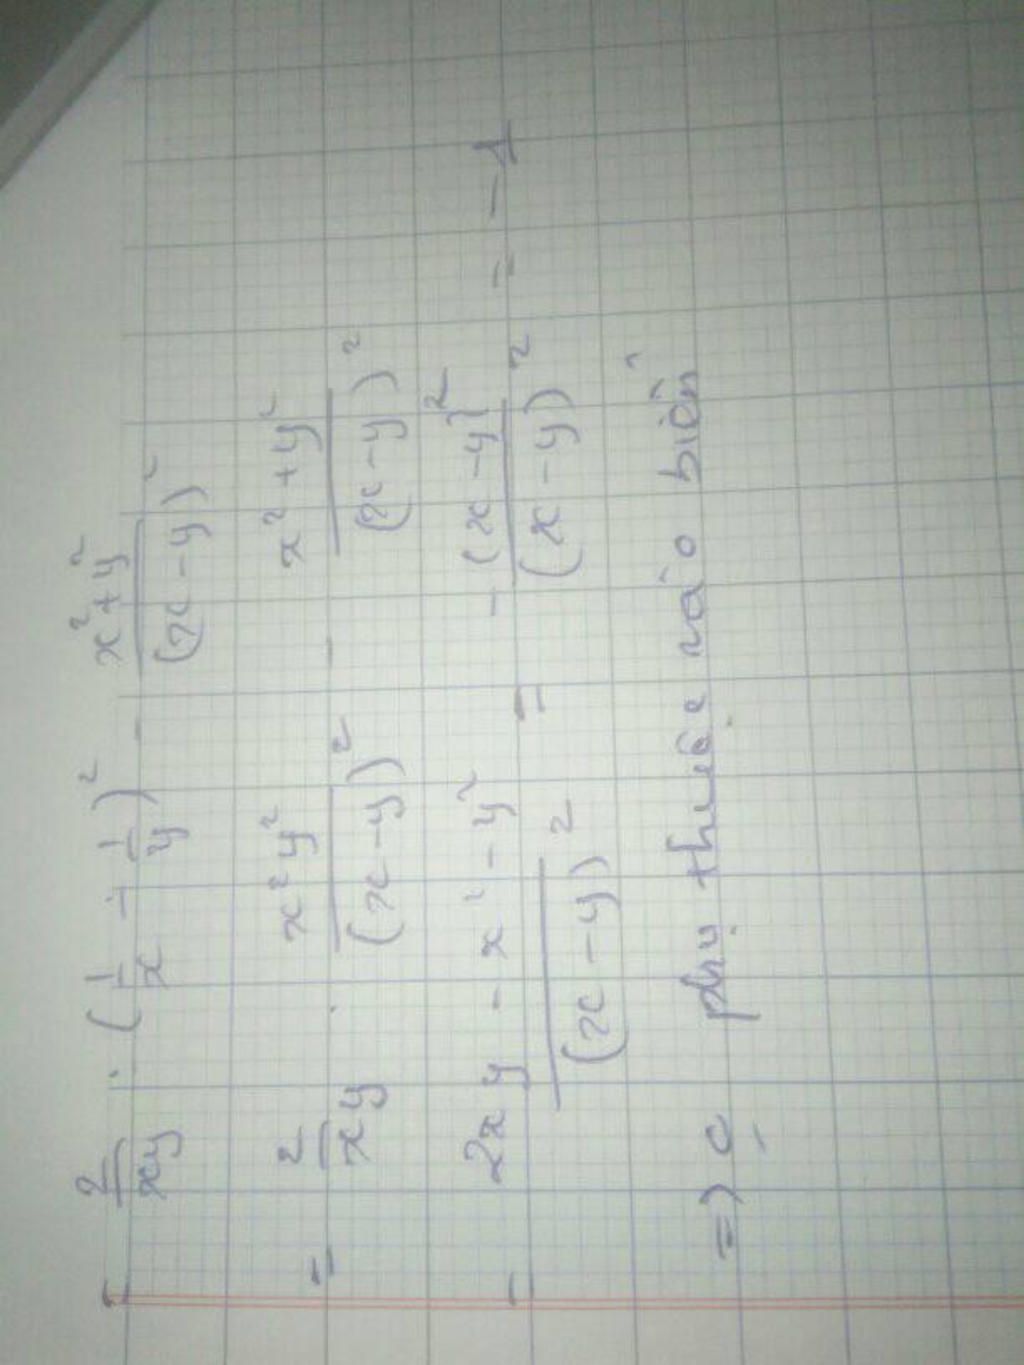 2/xy : (1/x - 1/y)² - (x²+y²)/(x-y)²
= 2/xy . x²y²/(x-y)² - (x²+y²)/(x-y)²
= (2xy - x² - y²)/(x-y)² = -(x-y)²/(x-y)² = -1
=> phụ thuộc vào biến